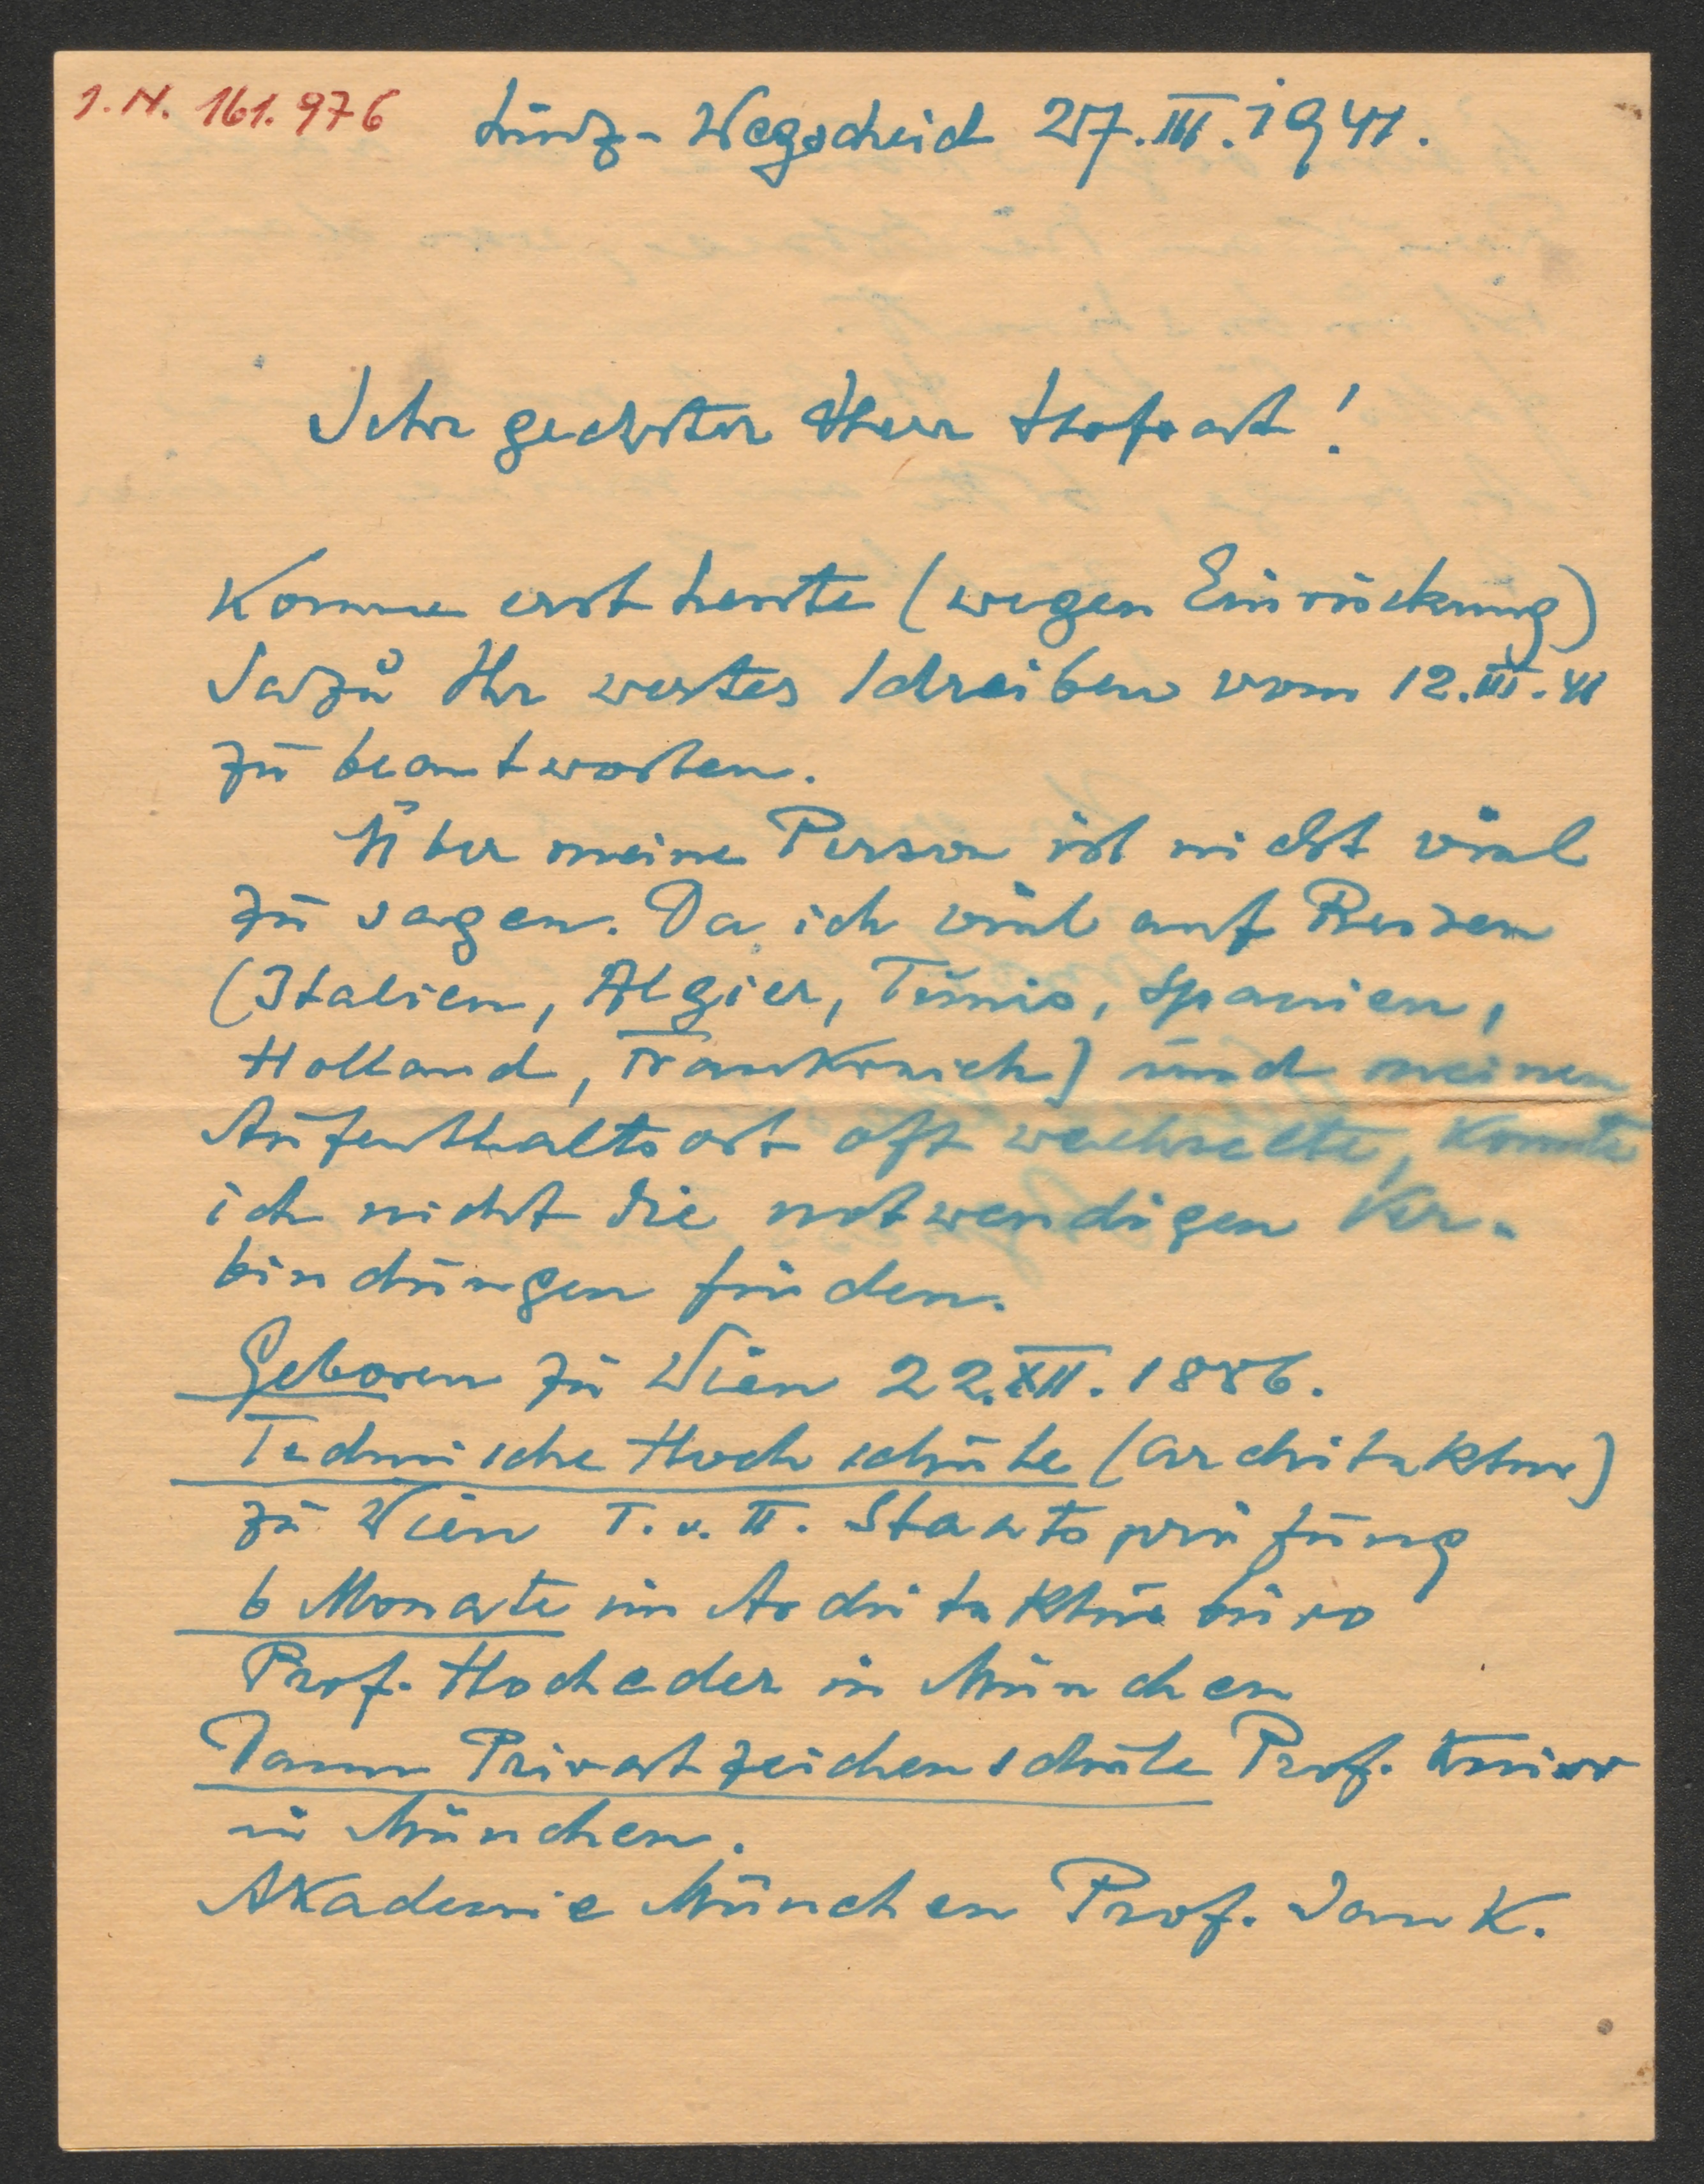 I.N. 161.976
Linz-Wegscheid 27.III.1941.
Sehr geehrter Herr Hofrat!
Komme erst heute (wegen Einrückung)
dazu Ihr wertes Schreiben vom 12.III.41
zu beantworten.
Über meine Person ist nicht viel
zu sagen. Da ich viel auf Reisen
(Italien, Algier, Tunis, Spanien,
Holland, Frankreich) und meinen
Aufenthaltsort oft wechselte, konnte
ich nicht die notwendigen Ver-
bindungen finden.
Geboren zu Wien 22.XII.1886.
Technische Hochschule (Architektur)
zu Wien I. u. II. Staatsprüfung
6 Monate im Architekturbüro
Prof. Hocheder in München
Dann Privatzeichenschule Prof. Knirr
in München.
Akademie München Prof. Jank.